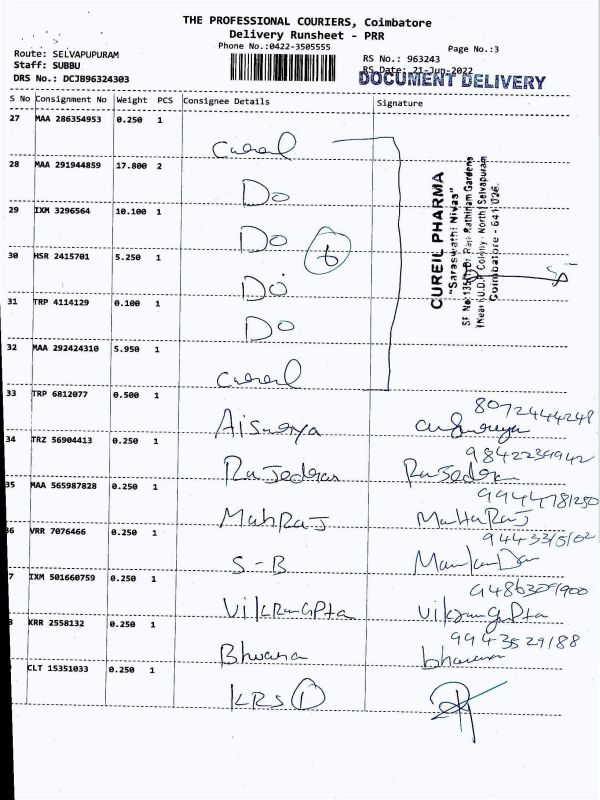 THE PROFESSIONAL COURIERS, Coimbatore
Delivery Runsheet - PRR
Phone No.:0422-3505555
Page No.:3
Route: SELVAPUPURAM
RS No.: 963243
Staff: SUBBU
RS Date: 21-Jun-2022
DRS No.: DCJB96324303
DOCUMENT DELIVERY
S No Consignment No Weight PCS Consignee Details Signature
27 MAA 286354953 0.250 1 Cureil
28 MAA 291944859 17.800 2 Do
29 IXM 3296564 10.100 1 Do 6
30 HSR 2415701 5.250 1 Do
31 TRP 4114129 0.100 1 Do
32 MAA 292424310 5.950 1 Cureil
CUREIL PHARMA
"Saraswathi Nivas"
Rathinam Gardens
(Near) U.D.P. Colony - North) Selvapuram
Coimbatore - 641 026.
33 TRP 6812077 0.500 1 Aisurya 8072444248
34 TRZ 56904413 0.250 1 Rajedran Rajedran 9842239942
35 MAA 565987828 0.250 1 MahRaJ MaHaRaJ 99447781250
36 VRR 7076466 0.250 1 S-B 9443315102
7 IXM 501660759 0.250 1 VikRanGPta VikranGPta 9486309900
8 KRR 2558132 0.250 1 Bhvana bhavana 9943529188
CLT 15351033 0.250 1 KRS 1